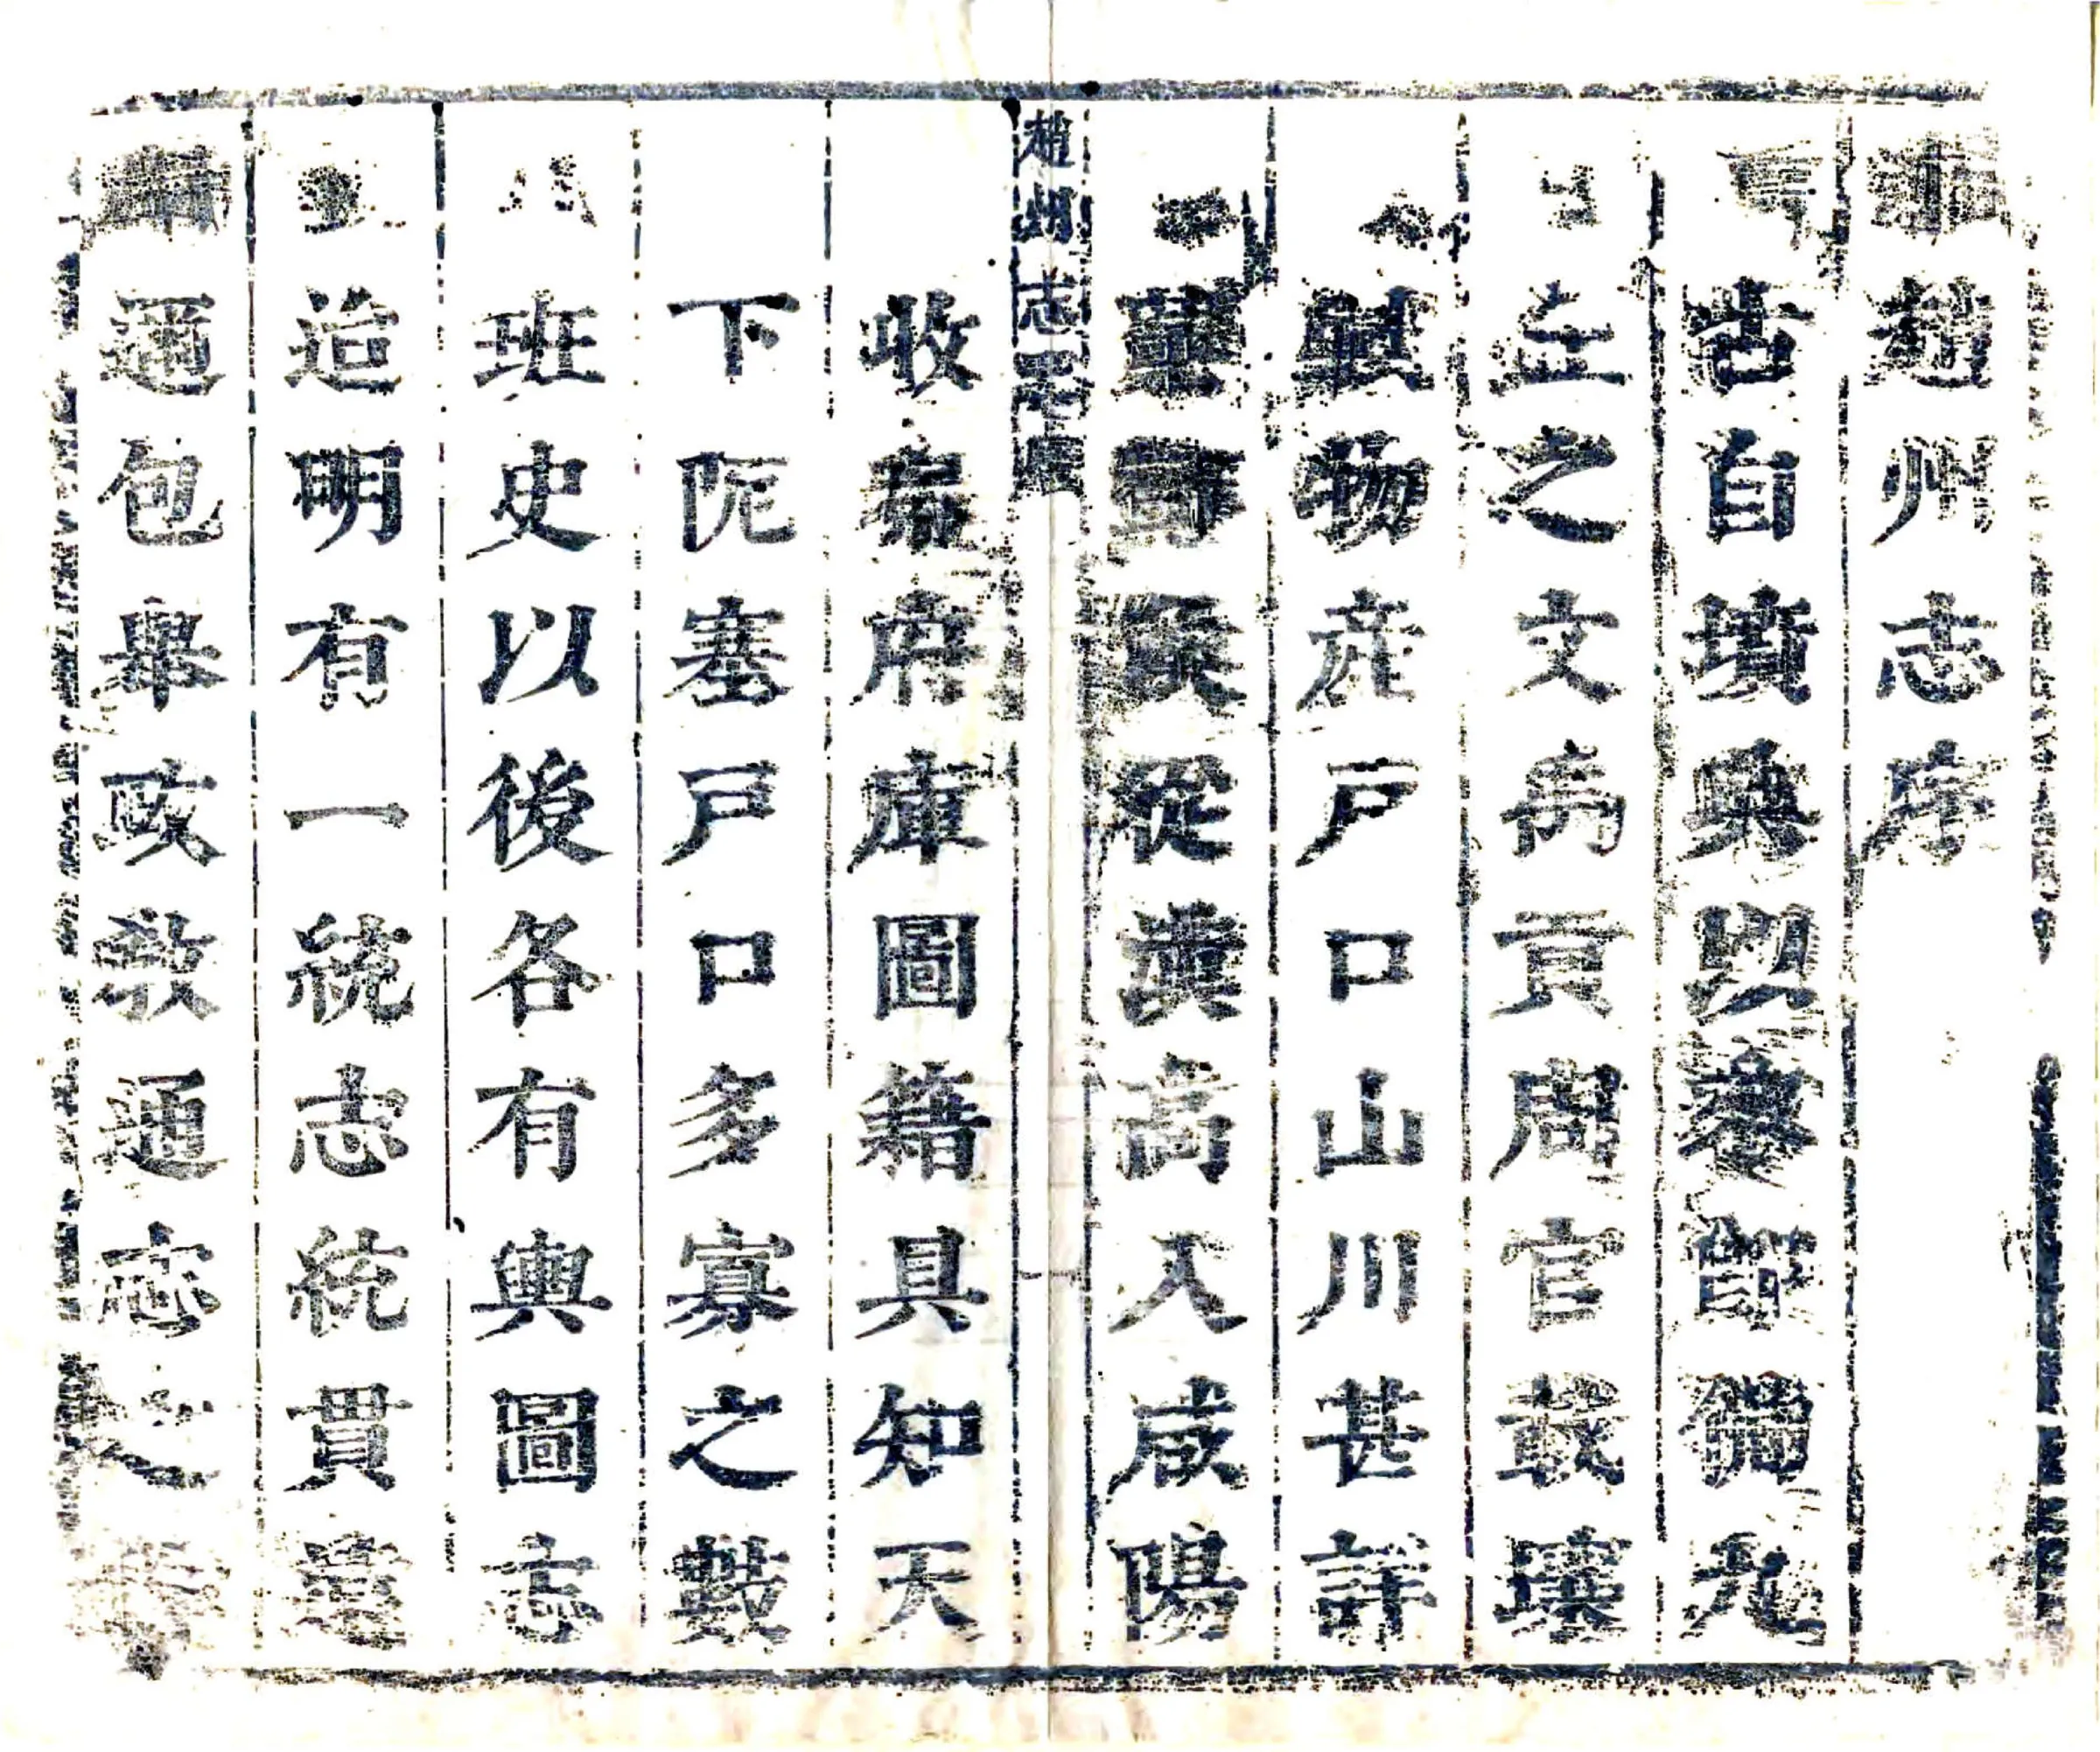 趙州志序
古自墳典以來 九
丘之文禹貢周官載壤
賦物産戸口山川甚詳
蕭 侯從漢高入咸陽
收秦府庫圖籍具知天
下阨塞戸口多寡之數
班史以後各有輿圖志
迨明有一統志統貫
通包舉政教通志之
趙州志